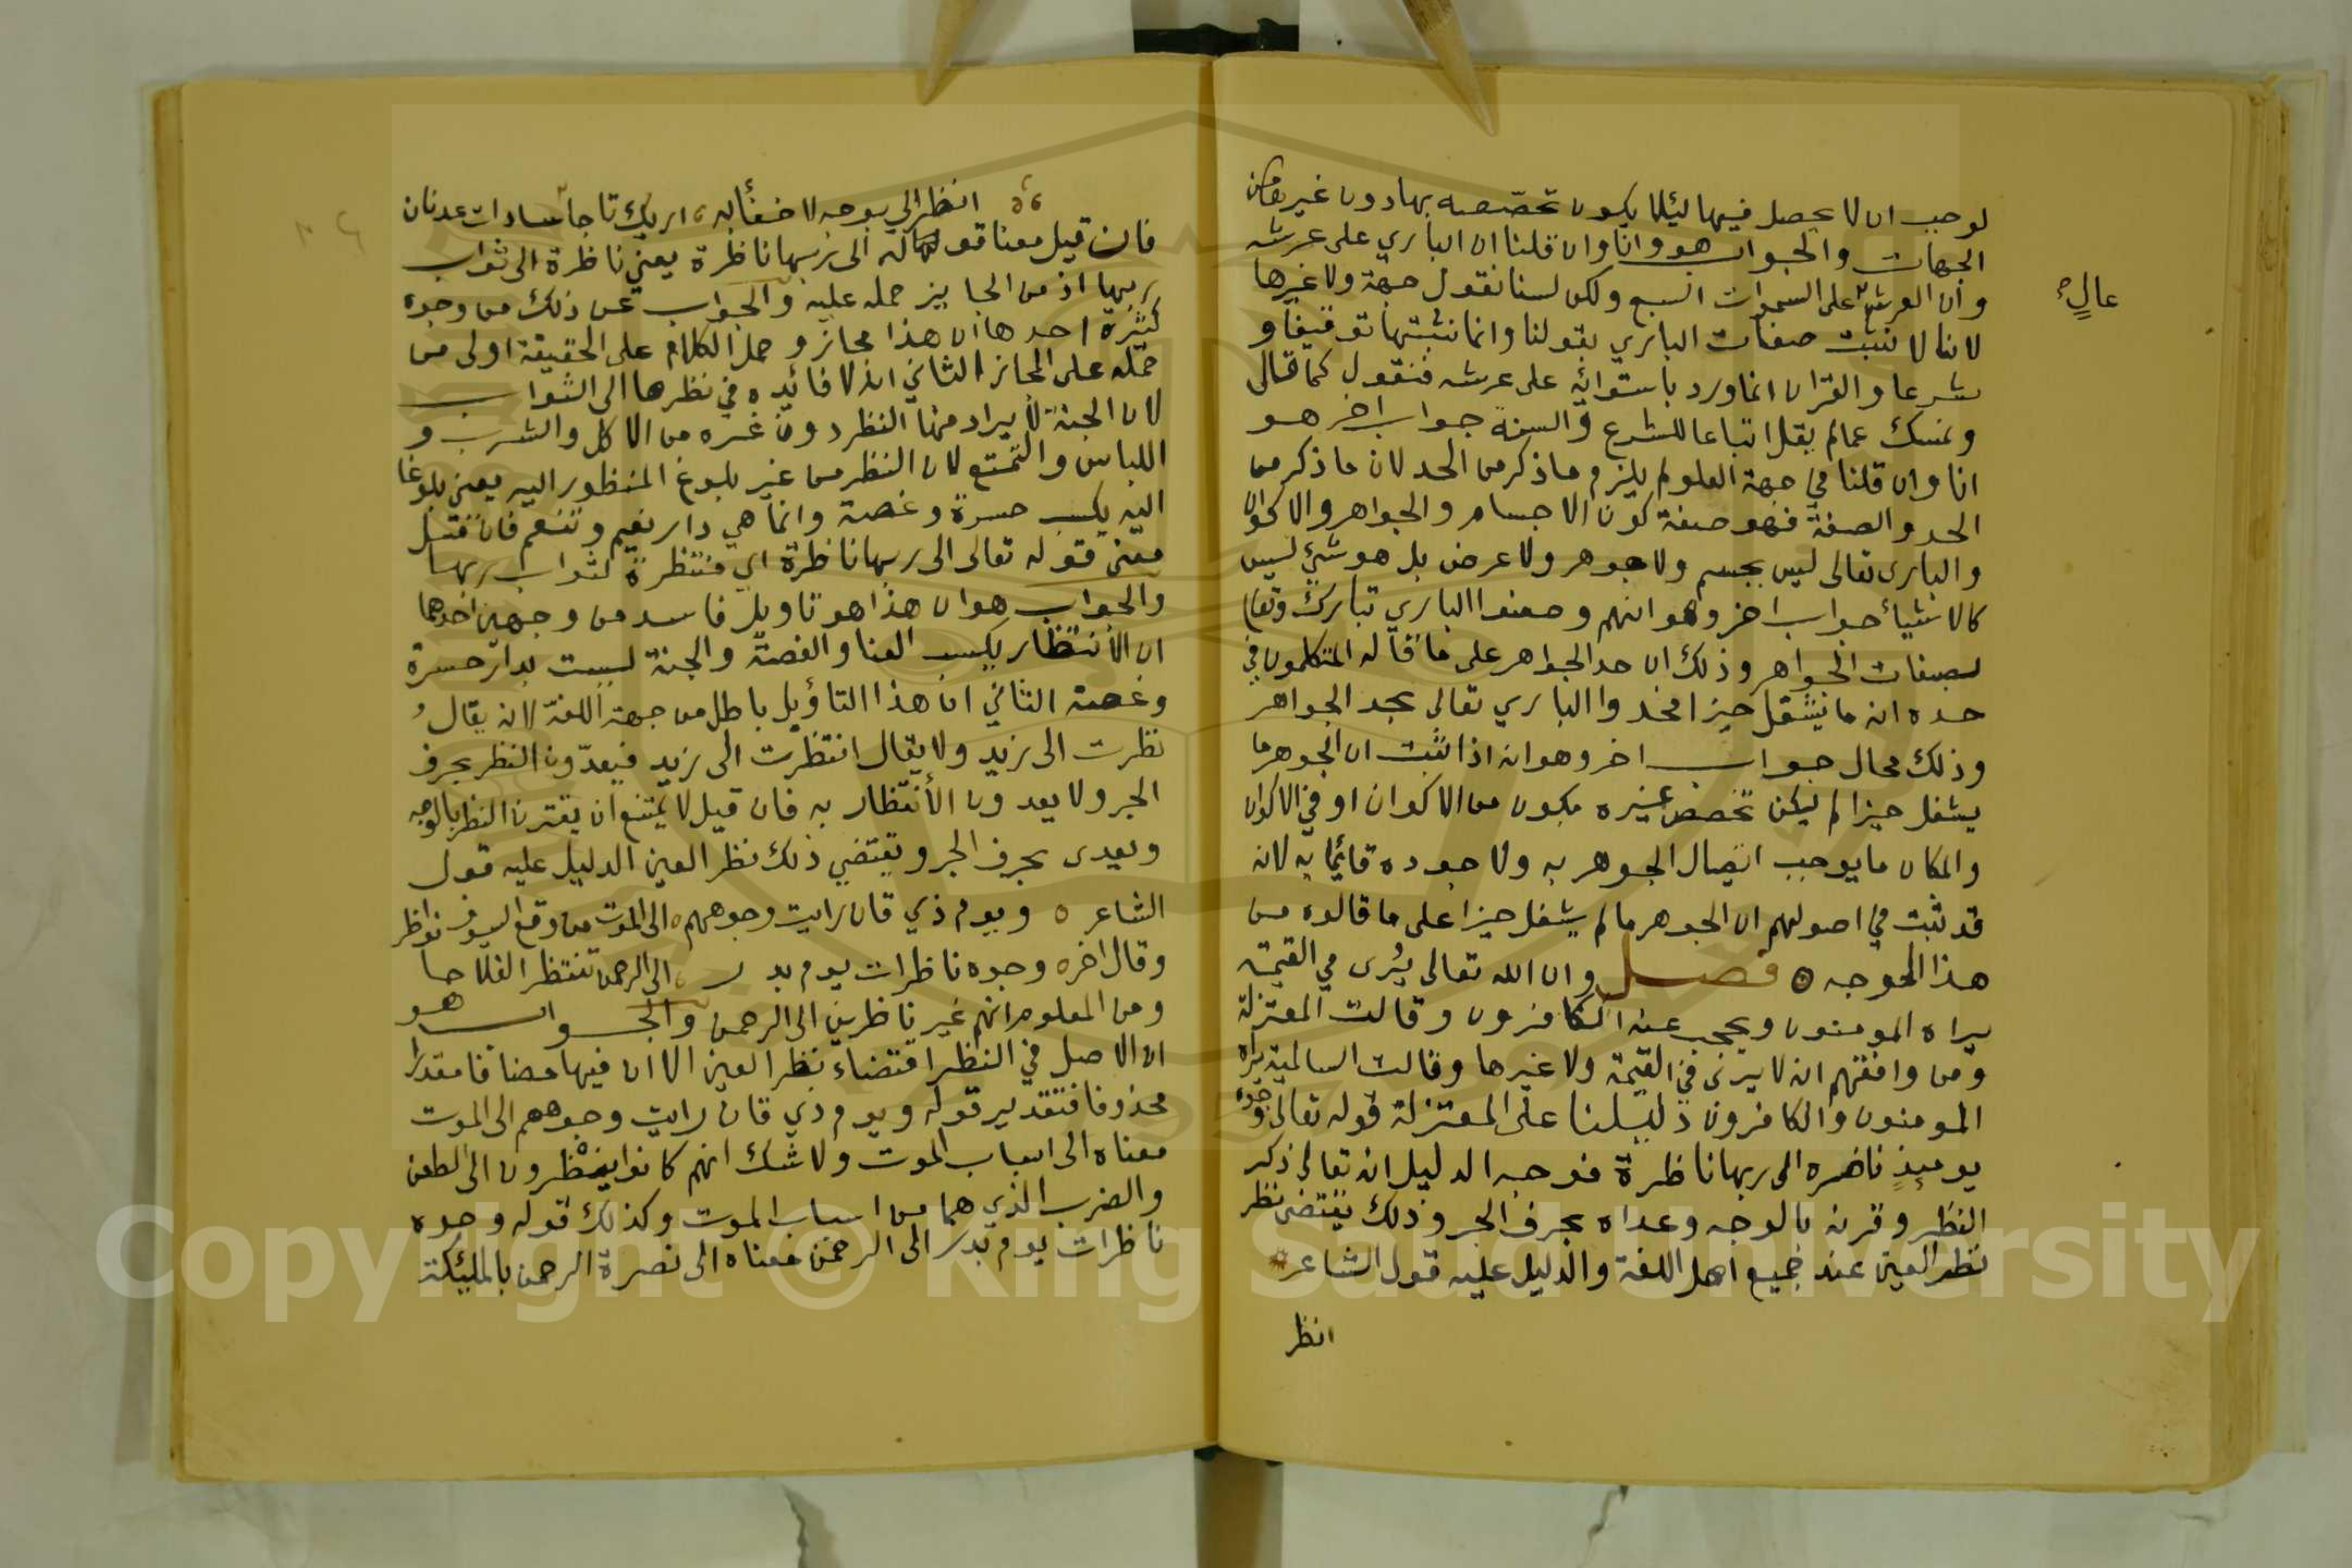 لوجب ان لا يحصل فيها ليئلا يكون تخصّصه بها دون غيرها من
الجهات والجواب هو وانا وان قلنا ان الباري على عرشه
وان العرش على السموات السبع ولكن لسنا نقول جهة ولا غيرها
عالٍ
لاننا لا نثبت صفات الباري بقولنا وانما نثبتها توقيفا و
شرعا والقران انما ورد باستوائه على عرشه فنقول كما قال
ونمسك عما لم يقل اتباعا للشرع والسنة جواب اخر هو
انا وان قلنا في جهة العلو لم يلزم ما ذكر من الحد لان ما ذكر من
الحد والصفة فهو صفة كون الاجسام والجواهر والاكوان
والباري تعالى ليس بجسم ولا جوهر ولا عرض بل هو شئ ليس
كالاشيأ جواب اخر وهو انهم وصفوا الباري تبارك وتعا
بصفات الجواهر وذلك ان حد الجواهر على ما قاله المتكلمون في
حده انه ما يشغل حيزا فحدوا الباري تعالى بحد الجواهر
وذلك محال جواب اخر وهو انه اذا ثبت ان الجوهر ما
يشغل حيزا لم يكن تخصص غيره بكون من الاكوان او في الاكوان
والمكان ما يوجب اتصال الجوهر به ولا جوده قائما به لانه
قد ثبت في اصولهم ان الجوهر ما لم يشغل حيزا على ما قالوه من
هذا الوجه ٥ فصل وان الله تعالى يُرى في القيمة
يراه المومنون ويحجب عنه الكافرون وقالت المعتزلة
ومن وافقهم انه لا يرى في القيمة ولا غيرها وقالت السالمية يراه
المومنون والكافرون دليلنا على المعتزلة قوله تعالى وجوه
يوميذٍ ناضره الى ربها ناظرة فوجه الدليل انه تعالى ذكر
النظر وقرنه بالوجه وعداه بحرف الجر وذلك يقتضي نظر
نظر العين عند جميع اهل اللغة والدليل عليه قول الشاعر
انظر
انظر الي بوجه لا خفأ به اريك تاجا سادات عدنان
فان قيل معنا قوله الى ربها ناظرة يعني ناظرة الى ثواب
ربها اذ من الجايز حمله عليه والجواب عن ذلك من وجوه
كثيرة احدها ان هذا مجاز وحمل الكلام على الحقيقة اولى من
حمله على المجاز الثاني انه لا فائيده في نظرها الى الثواب
لان الجنة لا يراد منها النظر دون غيره من الاكل والشرب و
اللباس والتمتع لان النظر من غير بلوغ المنظور اليه يعني بلوغا
اليه يكسب حسرةً وغصة وانما هي دار نعيم وتنعم فان قيل
معنى قوله تعالى الى ربها ناظرة اي منتظرة لثواب ربها
والجواب هو ان هذا هو تاويل فاسد من وجهين احدهما
ان الانتظار يكسب العنا والغصة والجنة ليست بدار حسرة
وغصة الثاني ان هذا التاؤيل باطل من جهة اللغة لانه يقال
نظرت الى زيد ولا يقال انتظرت الى زيد فيعدّون النظر بحرف
الجر ولا يعدون الأنتظار به فان قيل لا يمتنع ان يقترن النظر بالوجه
ويعدى بحرف الجر ويقتضي ذلك نظر العين الدليل عليه قول
الشاعر ٥ ويوم ذي قان رايت وجوههم ٥ الى الموت من وقع السيوف نواظر
وقال اخر ٥ وجوه ناظرات يوم بدر ٥ الى الرحمن تنتظر الفلاحا
ومن المعلوم انهم غير ناظرين الى الرحمن والجواب هو
ان الاصل في النظر اقتضاء نظر العين الا ان فيها مضافا مقدرا
محذوفا فتقدير قوله ويوم ذي قان رايت وجوههم الى الموت
معناه الى اسباب الموت ولا شك انهم كانوا ينظرون الى الطعن
والضرب الذي هما من اسباب الموت وكذلك قوله وجوه
ناظرات يوم بدر الى الرحمن معناه الى نصرة الرحمن بالمليكة
Copyright © King Saud University